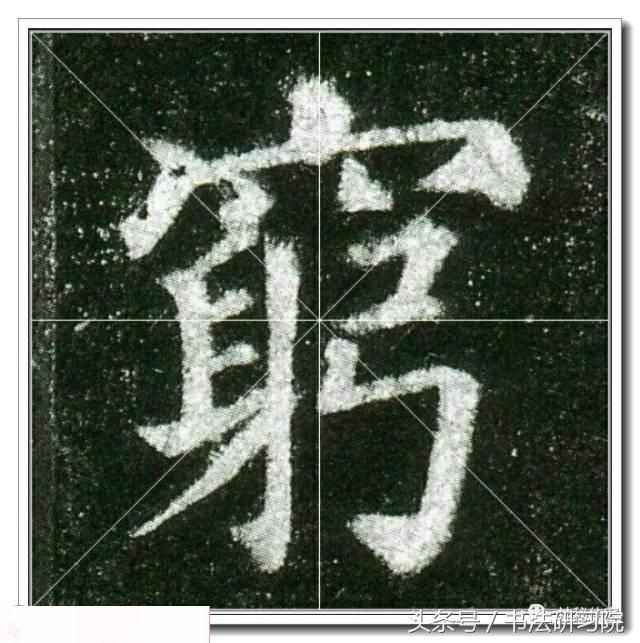 窮
头条号 / 书法研习院